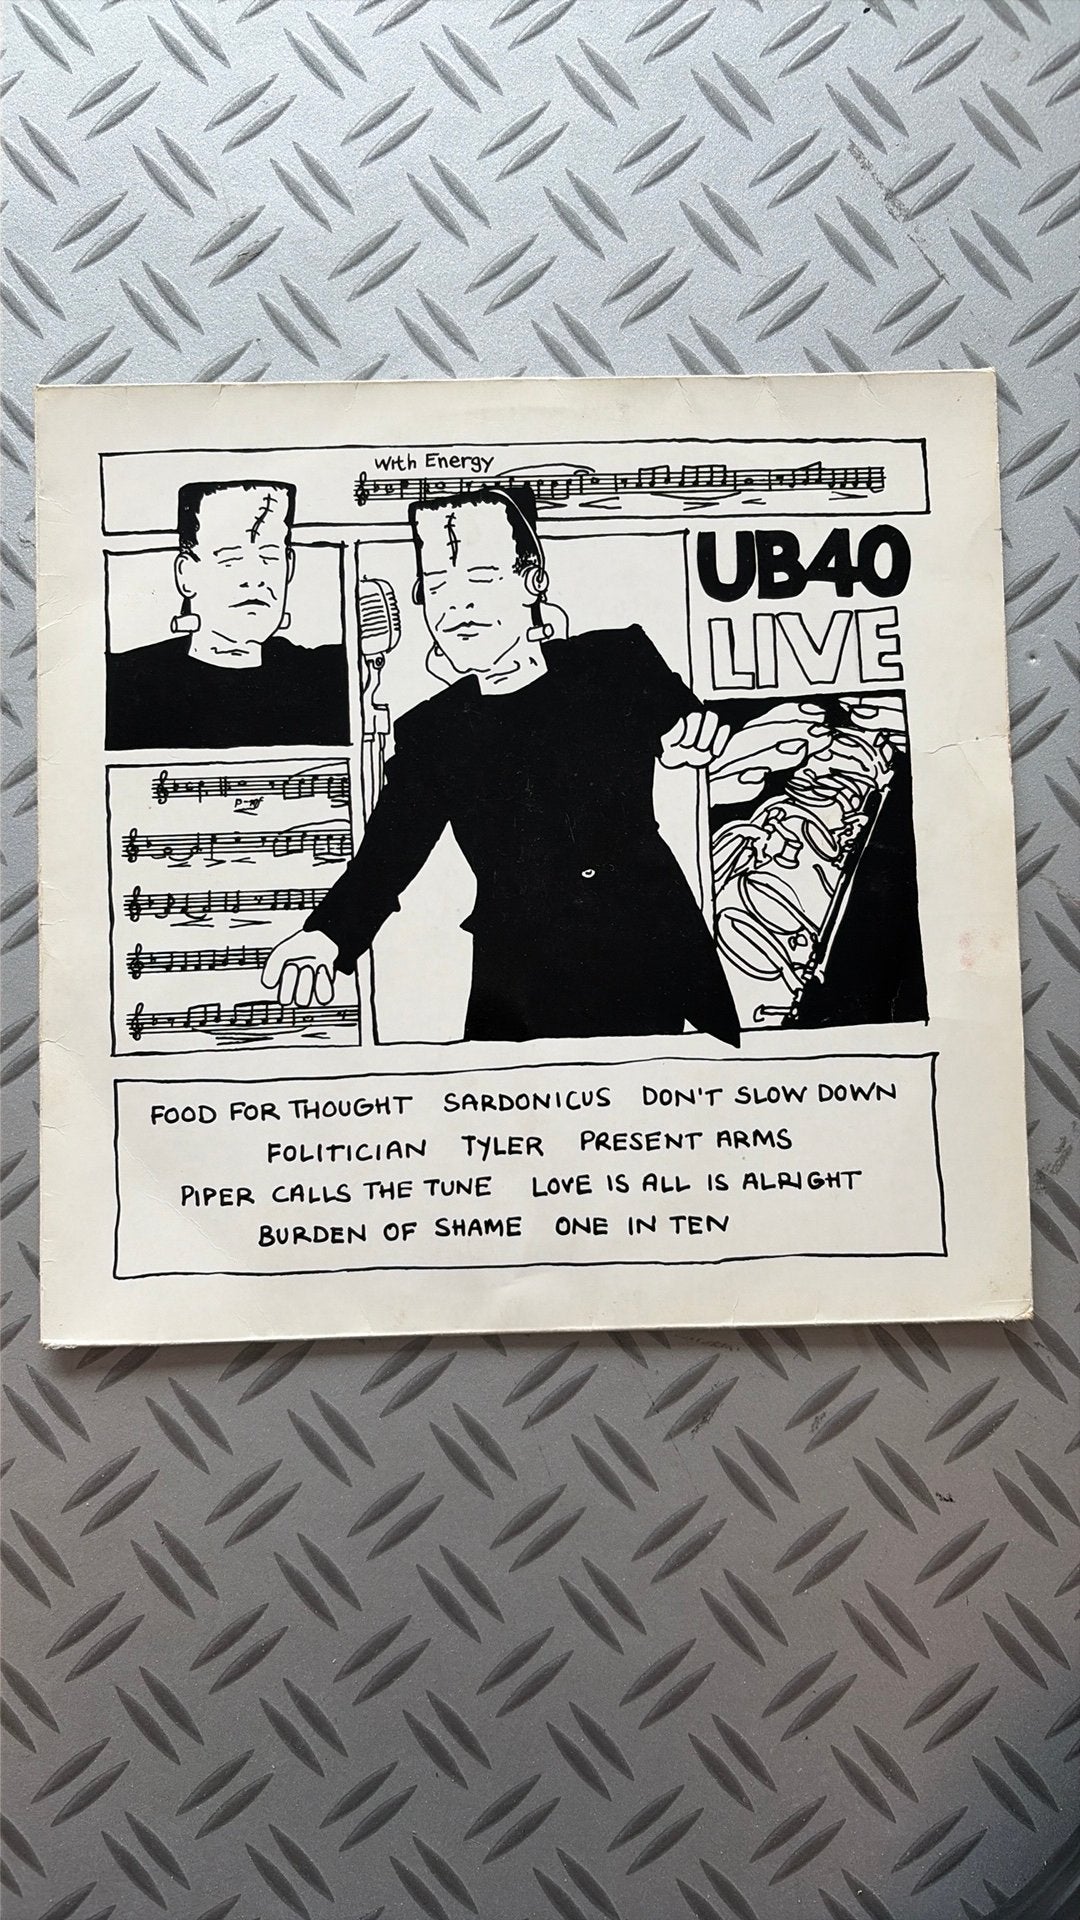 With Energy
UB40
LIVE
p-mf
FOOD FOR THOUGHT SARDONICUS DON'T SLOW DOWN
FOLITICIAN TYLER PRESENT ARMS
PIPER CALLS THE TUNE LOVE IS ALL IS ALRIGHT
BURDEN OF SHAME ONE IN TEN